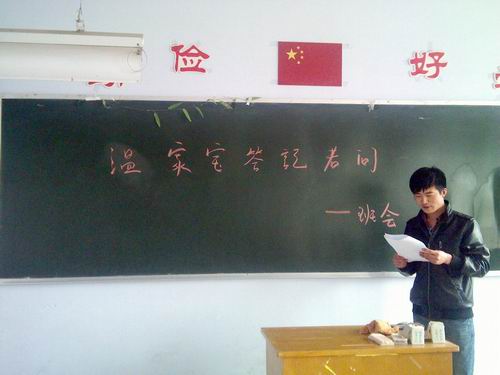 俭 好
温家宝答記者问
—班会